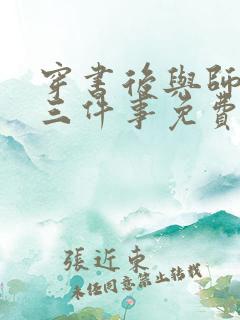 穿書後與師
三件事免費
張近東
未經同意禁止轉載